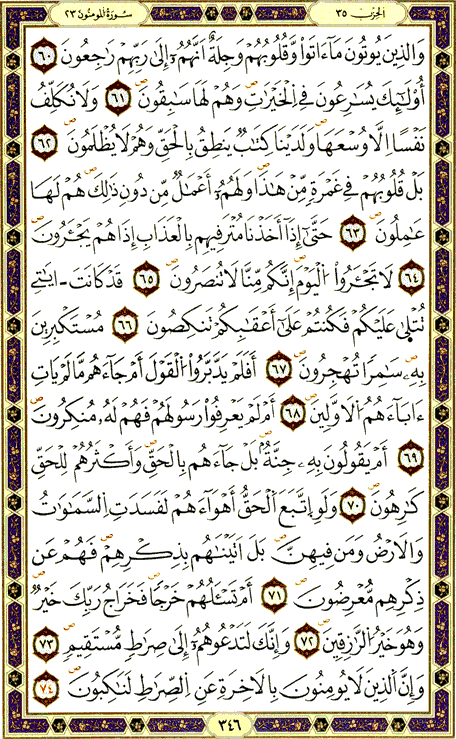 الحزب ٣٥
سورة المومنون ٢٣
وَالذِينَ يُوتُونَ مَآ ءَاتَواْ وَّقُلُوبُهُمْ وَجِلَةٌ اَنَّهُمُۥٓ إِلَىٰ رَبِّهِمْ رَٰجِعُونَ ٦٠
أُوْلَٰٓئِكَ يُسَٰرِعُونَ فِے اِ۬لْخَيْرَٰتِ وَهُمْ لَهَا سَٰبِقُونَ ٦١ وَلَا نُكَلِّفُ
نَفْساً اِلَّا وُسْعَهَا وَلَدَيْنَا كِتَٰبٌ يَنطِقُ بِالْحَقِّ وَهُمْ لَا يُظْلَمُونَ ٦٢
بَلْ قُلُوبُهُمْ فِے غَمْرَةٍ مِّنْ هَٰذَا وَلَهُمُۥٓ أَعْمَٰلٌ مِّن دُونِ ذَٰلِكَ هُمْ لَهَا
عَٰمِلُونَ ٦٣ حَتَّىٰٓ إِذَآ أَخَذْنَا مُتْرَفِيهِم بِالْعَذَابِ إِذَا هُمْ يَجْـَٔرُونَ
٦٤ لَا تَجْـَٔرُواْ اُ۬لْيَوْمَ إِنَّكُم مِّنَّا لَا تُنصَرُونَ ٦٥ قَدْ كَانَتَ ـ ايَٰتِے
تُتْلَىٰ عَلَيْكُمْ فَكُنتُمْ عَلَىٰٓ أَعْقَٰبِكُمْ تَنكِصُونَ ٦٦ مُسْتَكْبِرِينَ
بِهِۦ سَٰمِراً تُهْجِرُونَ ٦٧ أَفَلَمْ يَدَّبَّرُواْ اُ۬لْقَوْلَ أَمْ جَآءَهُم مَّا لَمْ يَاتِ
ءَابَآءَهُمُ اُ۬لَاوَّلِينَ ٦٨ أَمْ لَمْ يَعْرِفُواْ رَسُولَهُمْ فَهُمْ لَهُۥ مُنكِرُونَ
٦٩ أَمْ يَقُولُونَ بِهِۦ جِنَّةُۢ بَلْ جَآءَهُم بِالْحَقِّ وَأَكْثَرُهُمْ لِلْحَقِّ
كَٰرِهُونَ ٧٠ وَلَوِ اِ۪تَّبَعَ اَ۬لْحَقُّ أَهْوَآءَهُمْ لَفَسَدَتِ اِ۬لسَّمَٰوَٰتُ
وَالَارْضُ وَمَن فِيهِنَّ بَلَ اَتَيْنَٰهُم بِذِكْرِهِمْ فَهُمْ عَن
ذِكْرِهِم مُّعْرِضُونَ ٧١ أَمْ تَسْـَٔلُهُمْ خَرْجاً فَخَرَاجُ رَبِّكَ خَيْرٌ
وَهُوَ خَيْرُ اُ۬لرَّٰزِقِينَ ٧٢ وَإِنَّكَ لَتَدْعُوهُمُۥٓ إِلَىٰ صِرَٰطٍ مُّسْتَقِيمٍ ٧٣
وَإِنَّ اَ۬لذِينَ لَا يُومِنُونَ بِالَاخِرَةِ عَنِ اِ۬لصِّرَٰطِ لَنَٰكِبُونَ ٧٤
٣٤٦